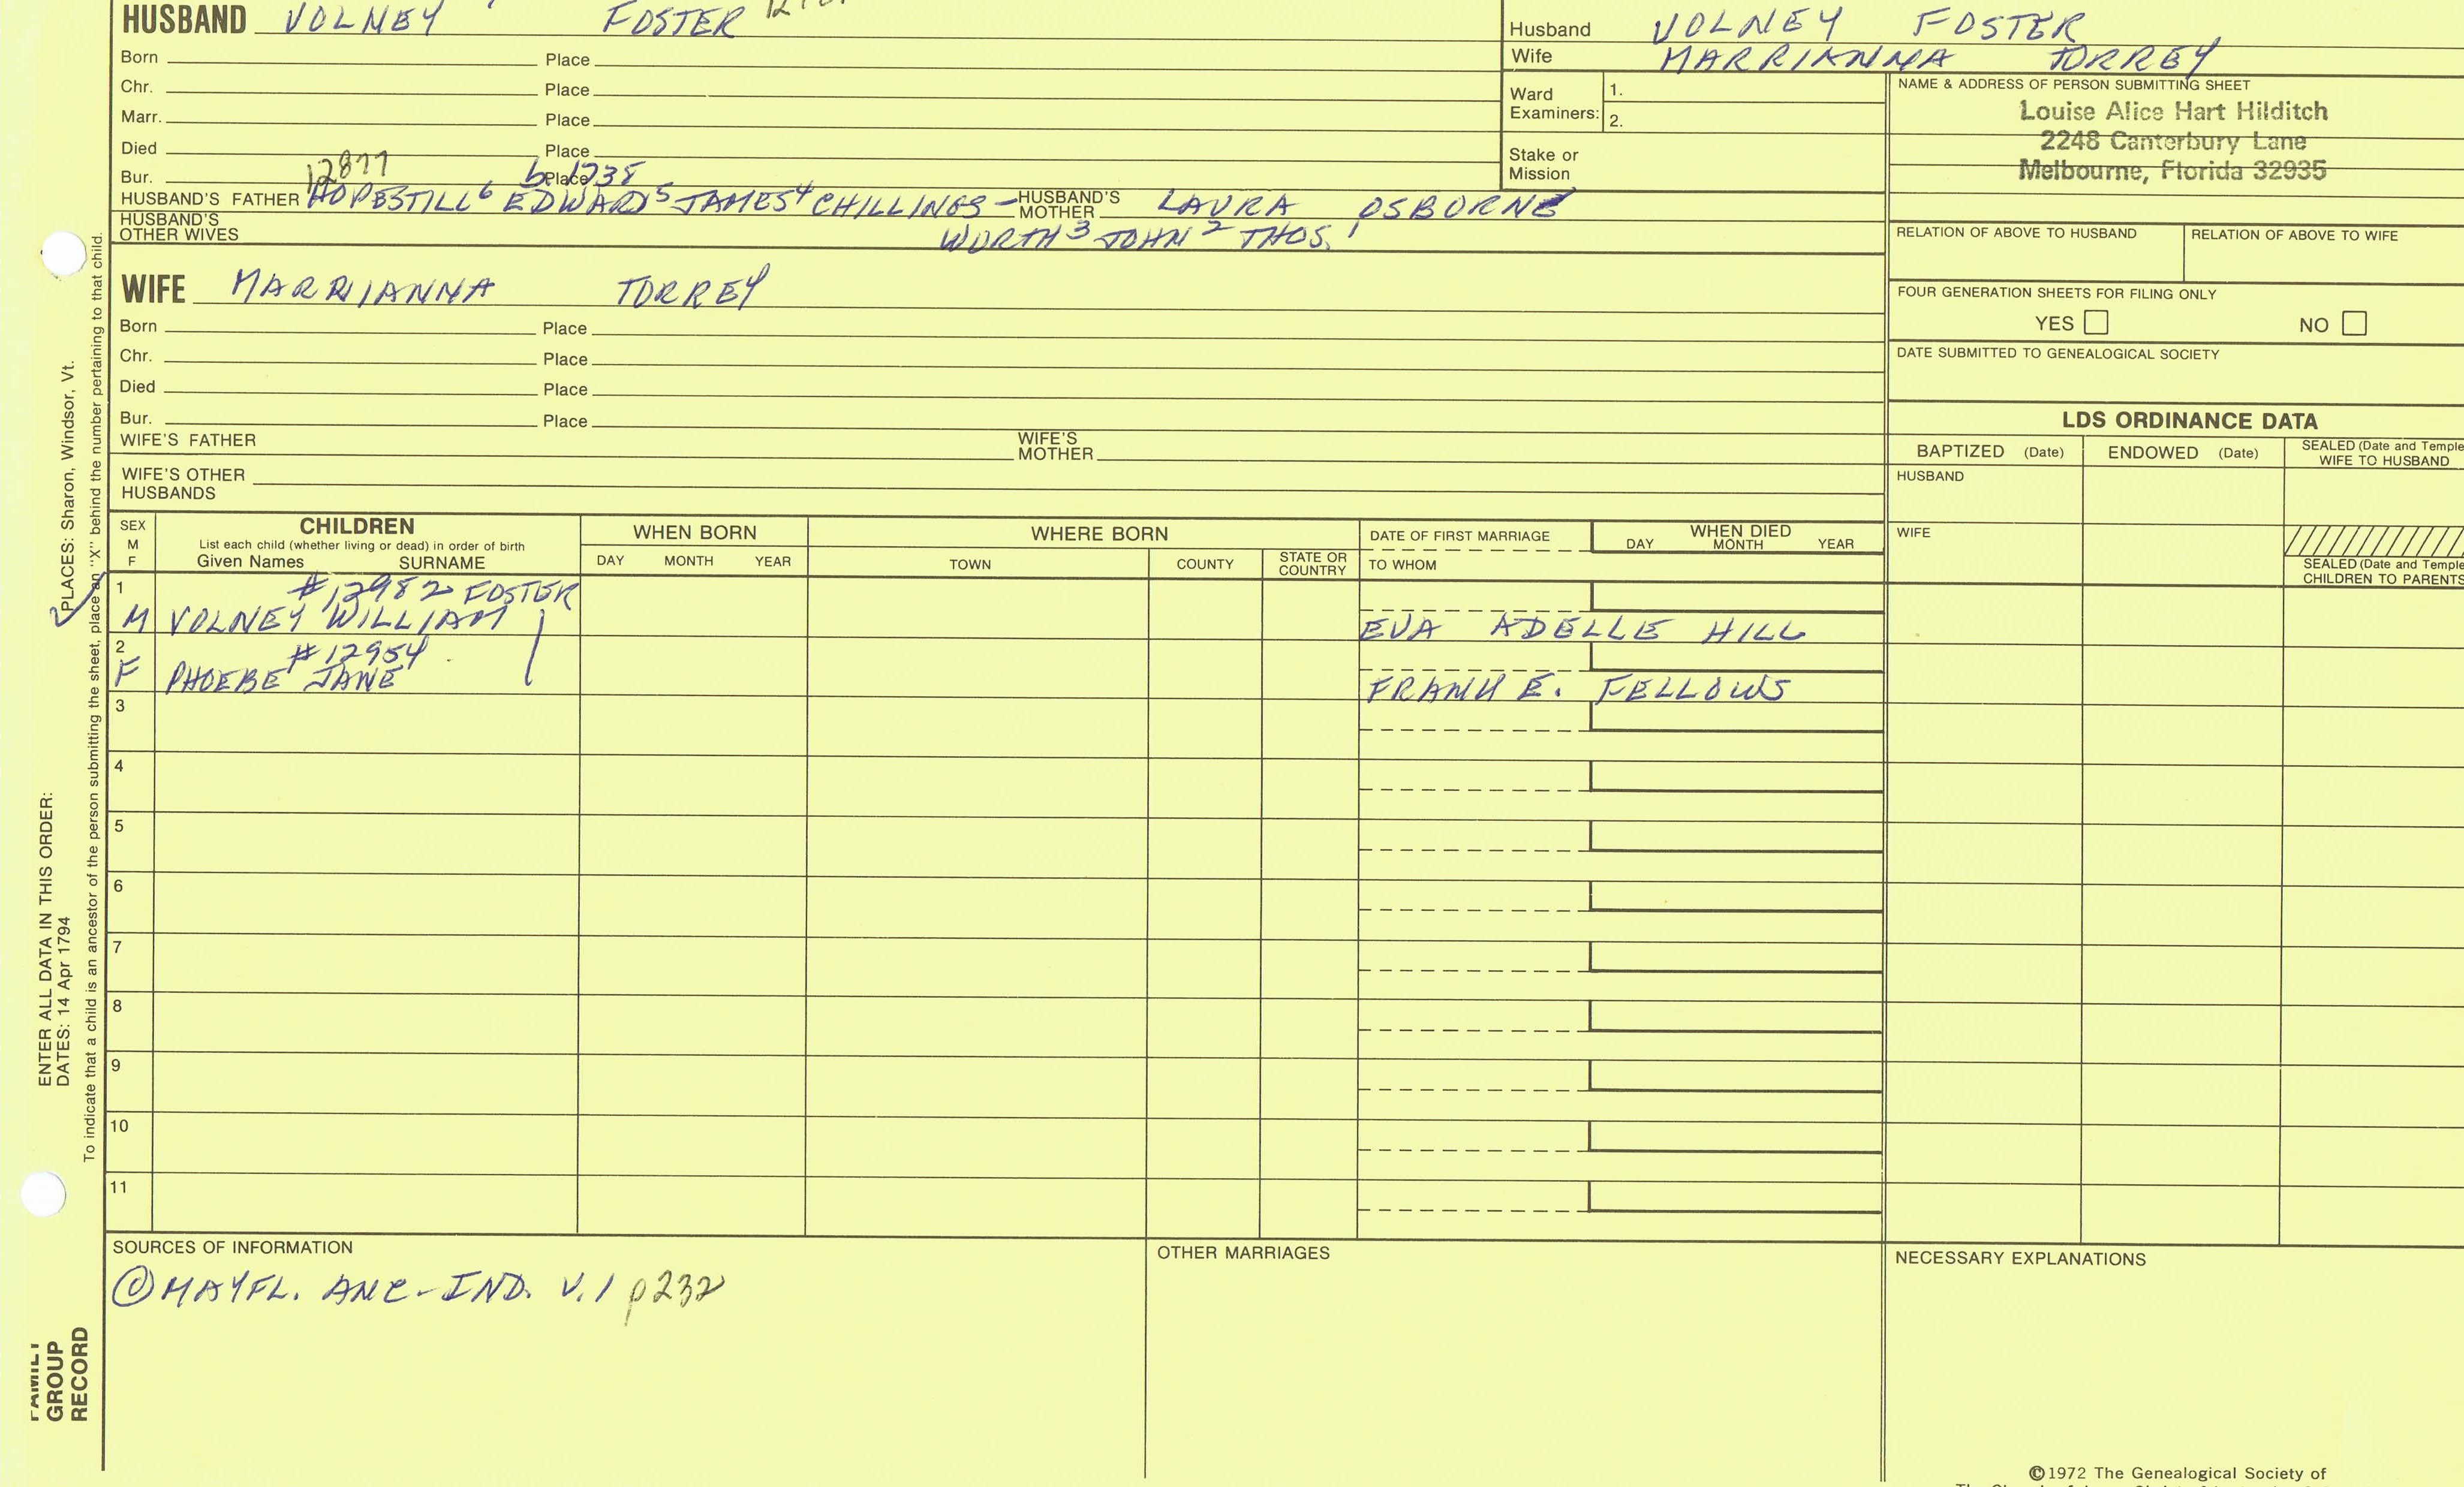 HUSBAND VOLNEY FOSTER
Husband VOLNEY FOSTER
Wife MARRIANNA TORREY
Born Place
Chr. Place
Marr. Place
Died Place
Bur. 12877 Place b. 1738
HUSBAND'S FATHER HOPESTILL⁶ EDWARD⁵ JAMES⁴ CHILLINGS- HUSBAND'S MOTHER LAURA OSBORNE
HUSBAND'S OTHER WIVES WORTH³ JOHN² THOS.¹
Ward Examiners: 1.
2.
Stake or Mission
NAME & ADDRESS OF PERSON SUBMITTING SHEET
Louise Alice Hart Hilditch
2248 Canterbury Lane
Melbourne, Florida 32935
RELATION OF ABOVE TO HUSBAND RELATION OF ABOVE TO WIFE
FOUR GENERATION SHEETS FOR FILING ONLY
YES NO
DATE SUBMITTED TO GENEALOGICAL SOCIETY
WIFE MARRIANNA TORREY
Born Place
Chr. Place
Died Place
Bur. Place
WIFE'S FATHER WIFE'S MOTHER
WIFE'S OTHER HUSBANDS
LDS ORDINANCE DATA
BAPTIZED (Date) ENDOWED (Date) SEALED (Date and Temple
WIFE TO HUSBAND
HUSBAND
WIFE
SEALED (Date and Temple
CHILDREN TO PARENTS
SEX
M
F
CHILDREN
List each child (whether living or dead) in order of birth
Given Names SURNAME
WHEN BORN
DAY MONTH YEAR
WHERE BORN
TOWN COUNTY STATE OR COUNTRY
DATE OF FIRST MARRIAGE
TO WHOM
WHEN DIED
DAY MONTH YEAR
1 #12982 FOSTER
M VOLNEY WILLIAM EVA ADELLE HILL
2 #12954
F PHOEBE JANE FRANK E. FELLOWS
3
4
5
6
7
8
9
10
11
SOURCES OF INFORMATION
① MAYFL. ANC-IND. V.1 p232
OTHER MARRIAGES
NECESSARY EXPLANATIONS
©1972 The Genealogical Society of
ENTER ALL DATA IN THIS ORDER:
DATES: 14 Apr 1794
PLACES: Sharon, Windsor, Vt.
To indicate that a child is an ancestor of the person submitting the sheet, place an "X" behind the number pertaining to that child.
FAMILY
GROUP
RECORD